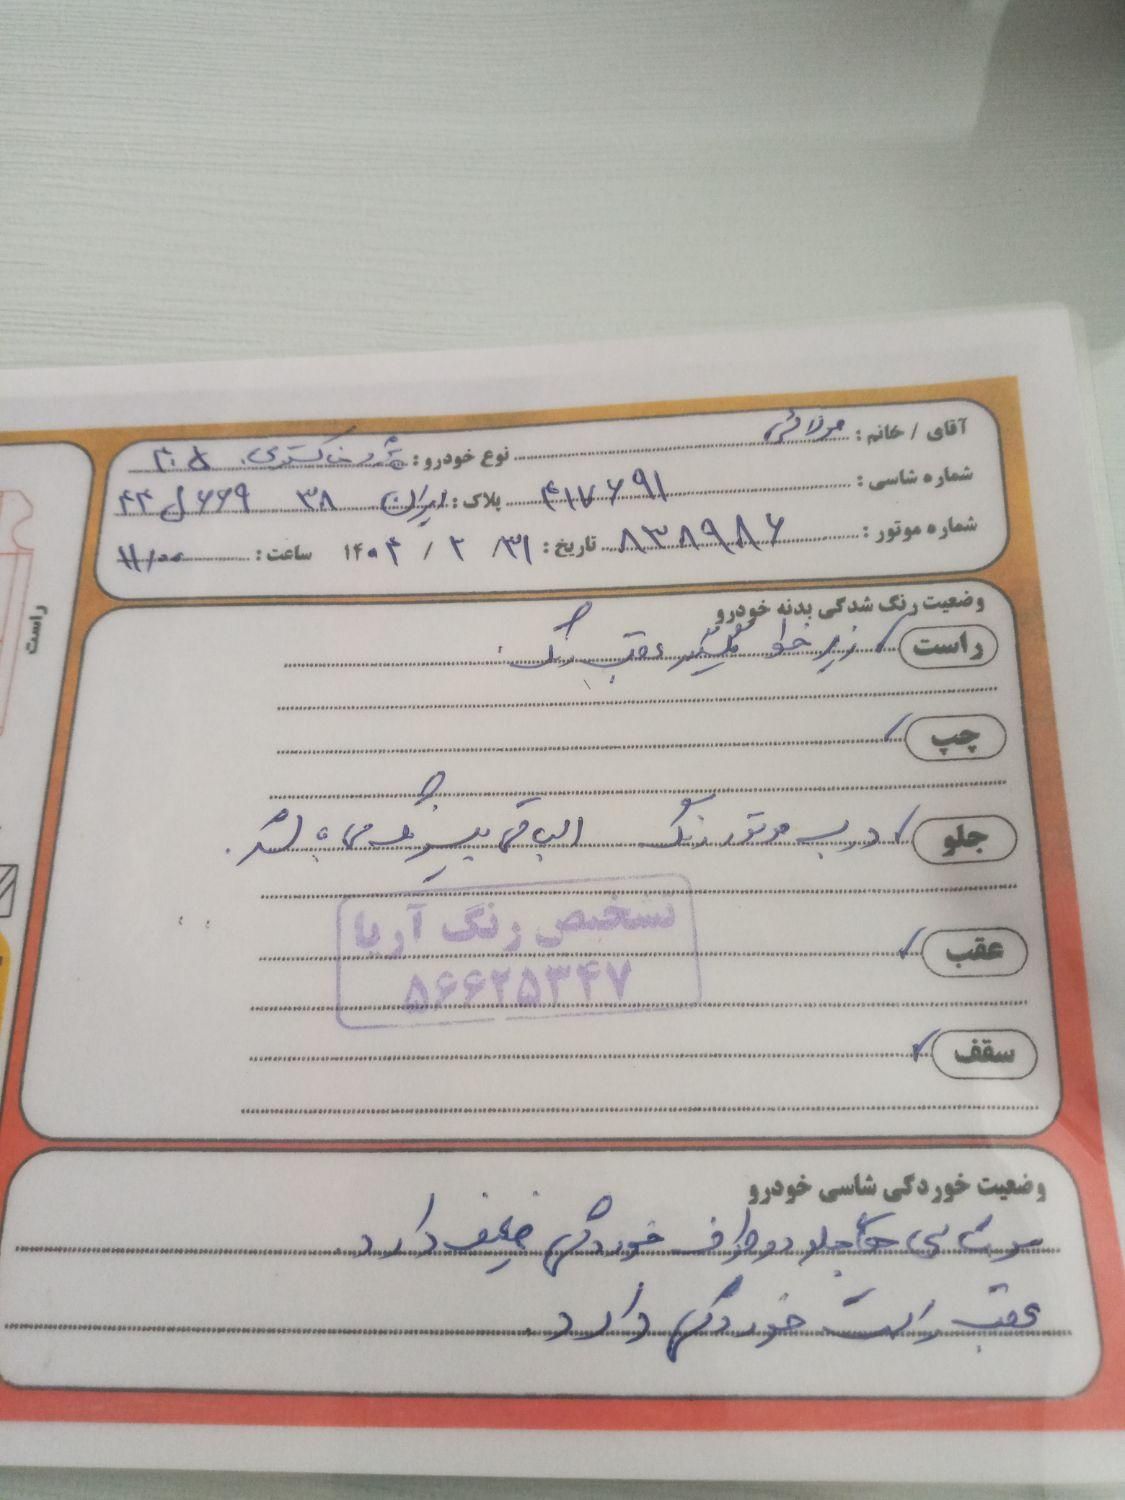 آقای / خانم : مولائی نوع خودرو : پژو خاکستری ۴۰۵
شماره شاسی : ۴۱۷۶۹۱ پلاک : ایران ۳۸ ۶۶۹ ل ۴۴
شماره موتور : ۸۳۸۹۸۶ تاریخ : ۳۱ / ۲ / ۱۴۰۴ ساعت : ۱۱/۰۰
راست
وضعیت رنگ شدگی بدنه خودرو
راست ✓ زیر خواب گلگیر عقب رنگ
چپ ✓
جلو ✓ درب موتور رنگ الباقی بیرنگ می باشد.
تشخیص رنگ آریا
۵۶۶۲۵۳۴۷
عقب ✓
سقف ✓
وضعیت خوردگی شاسی خودرو
سرشاسی جلو دو طرف خوردگی ضعیف دارد
عقب راست خوردگی دارد